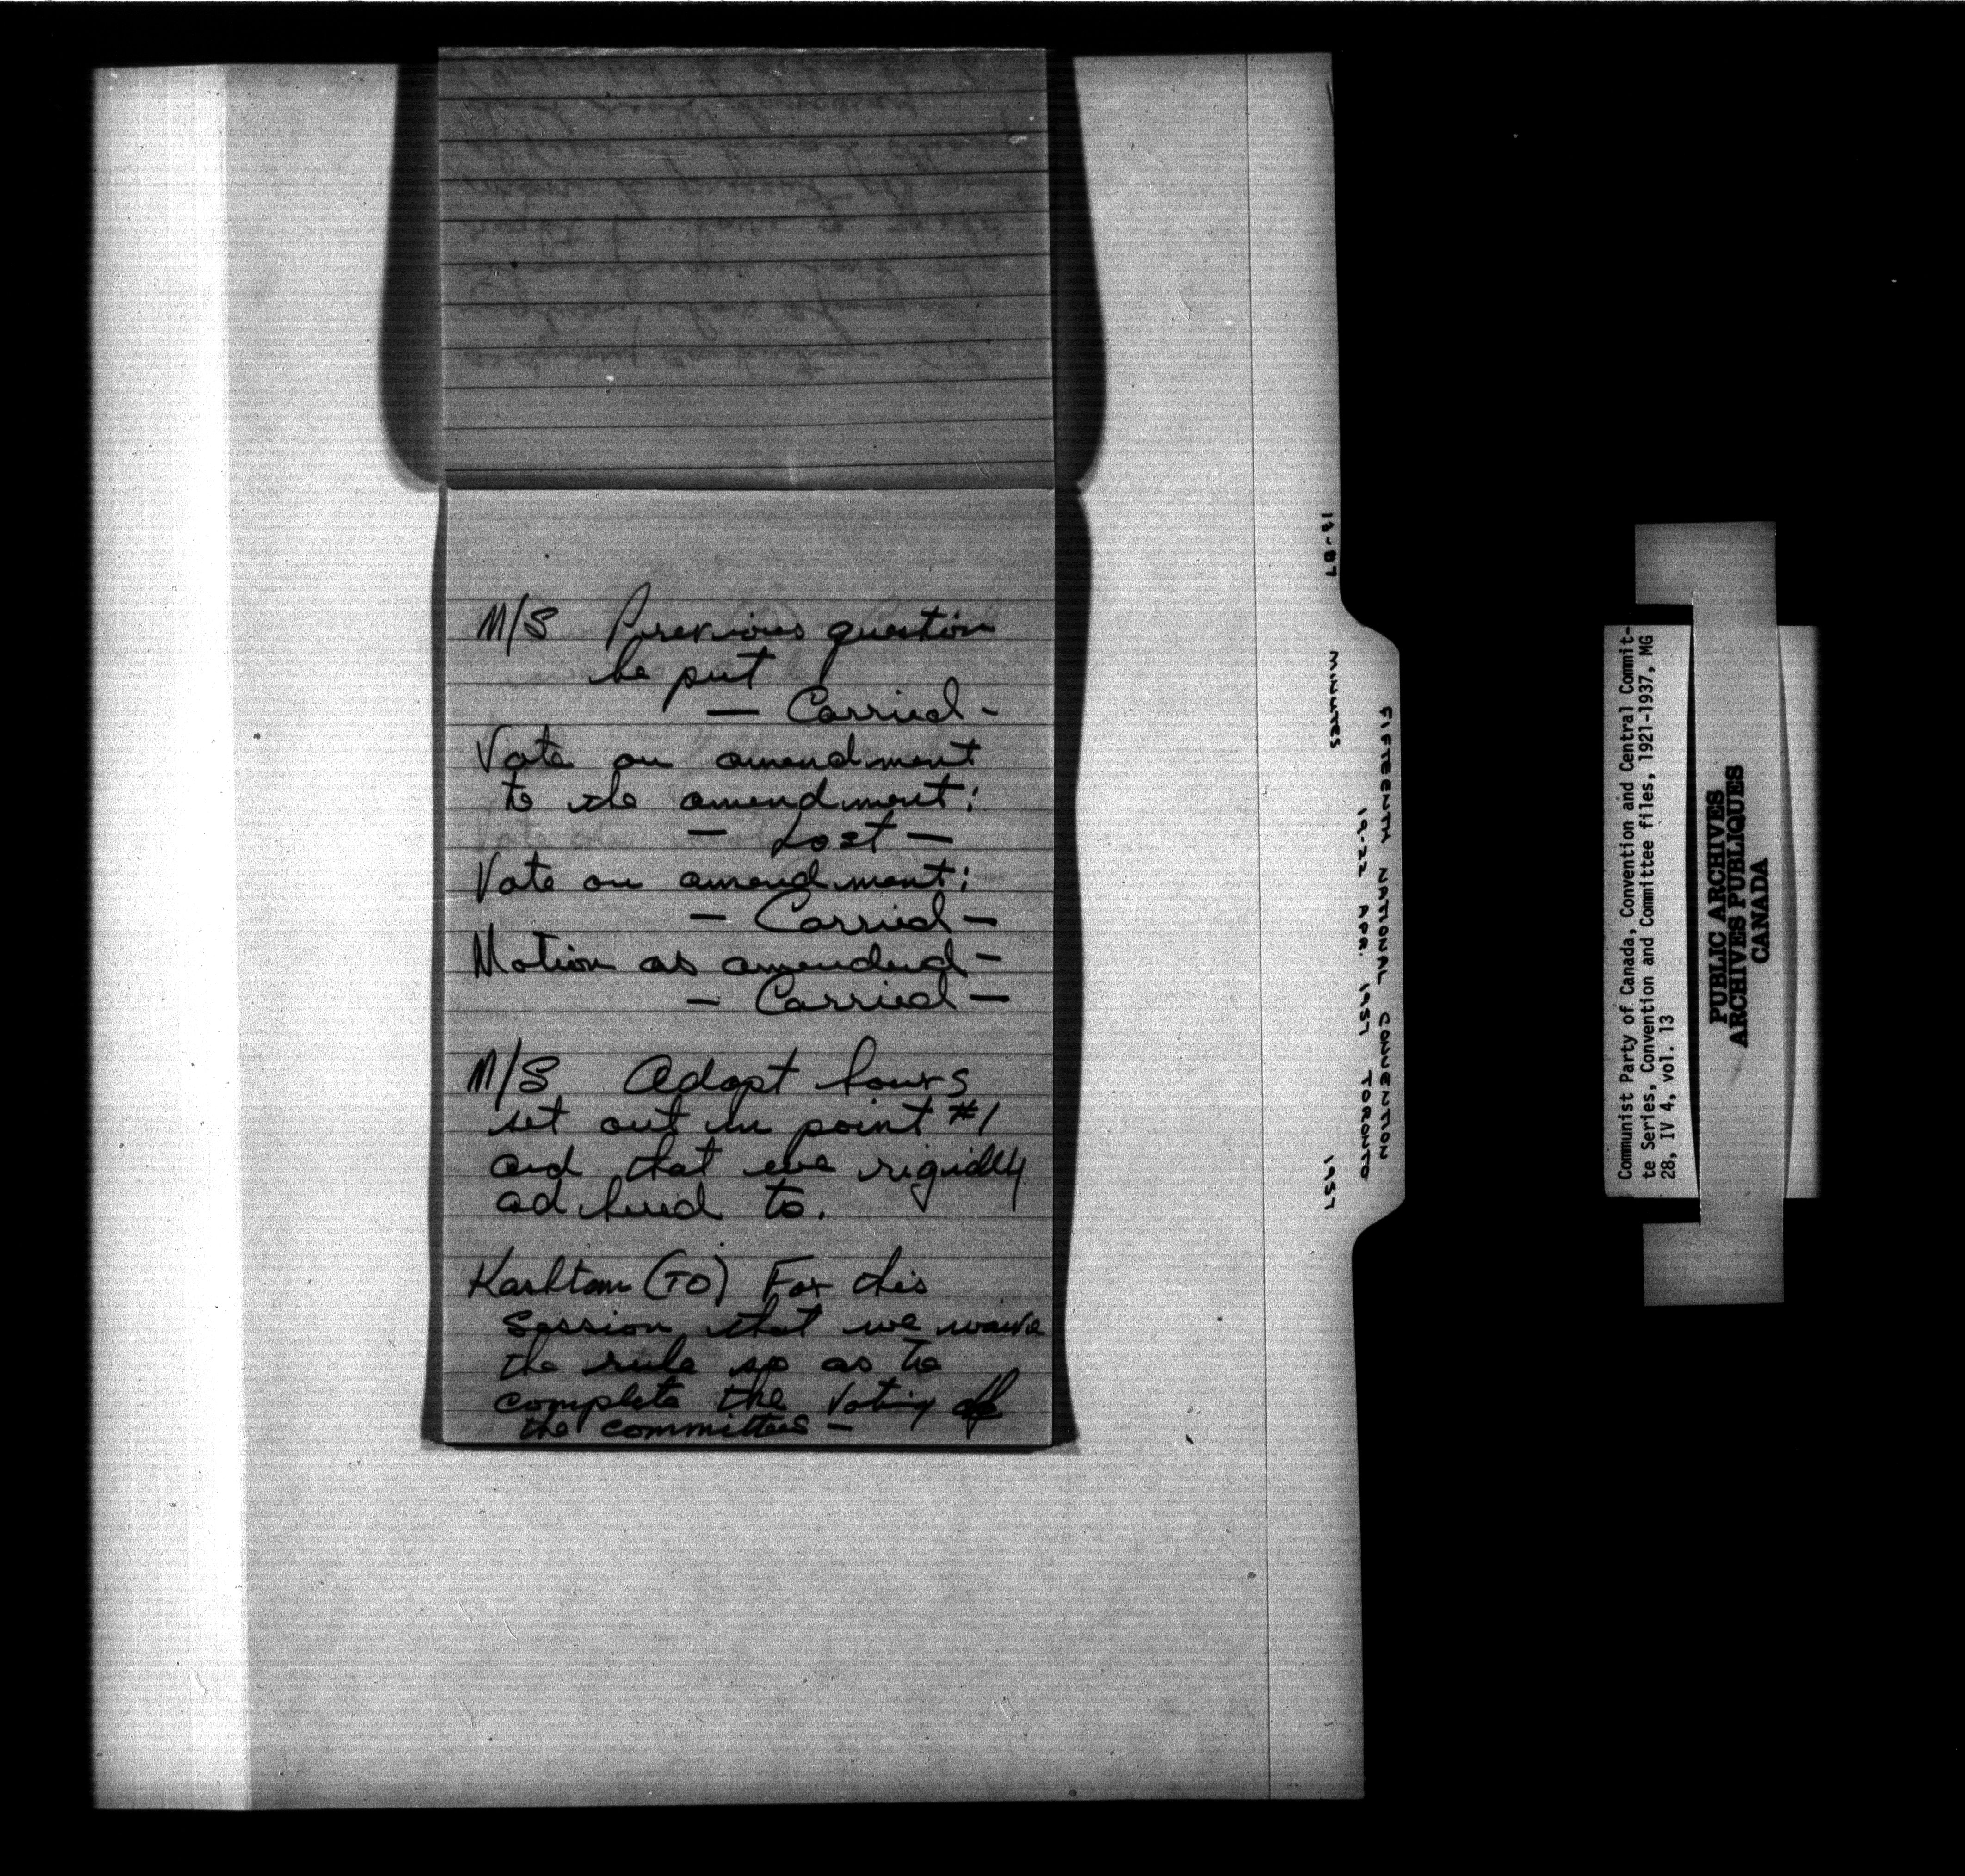 M/S Previous question
be put
— Carried -
Vote on amendment
to the amendment:
— Lost —
Vote on amendment:
— Carried —
Motion as amended —
— Carried —
M/S Adopt hours
set out in point #1
and that we rigidly
adhered to.
Karltam (TO) For this
Session that we waive
the rule so as to
complete the voting of
the committees —
13-07
MINUTES
1957
FIFTEENTH NATIONAL CONVENTION
19-22 APR. 1957 TORONTO
Communist Party of Canada, Convention and Central Commit-
te Series, Convention and Committee files, 1921-1937, MG
28, IV 4, vol. 13
PUBLIC ARCHIVES
ARCHIVES PUBLIQUES
CANADA